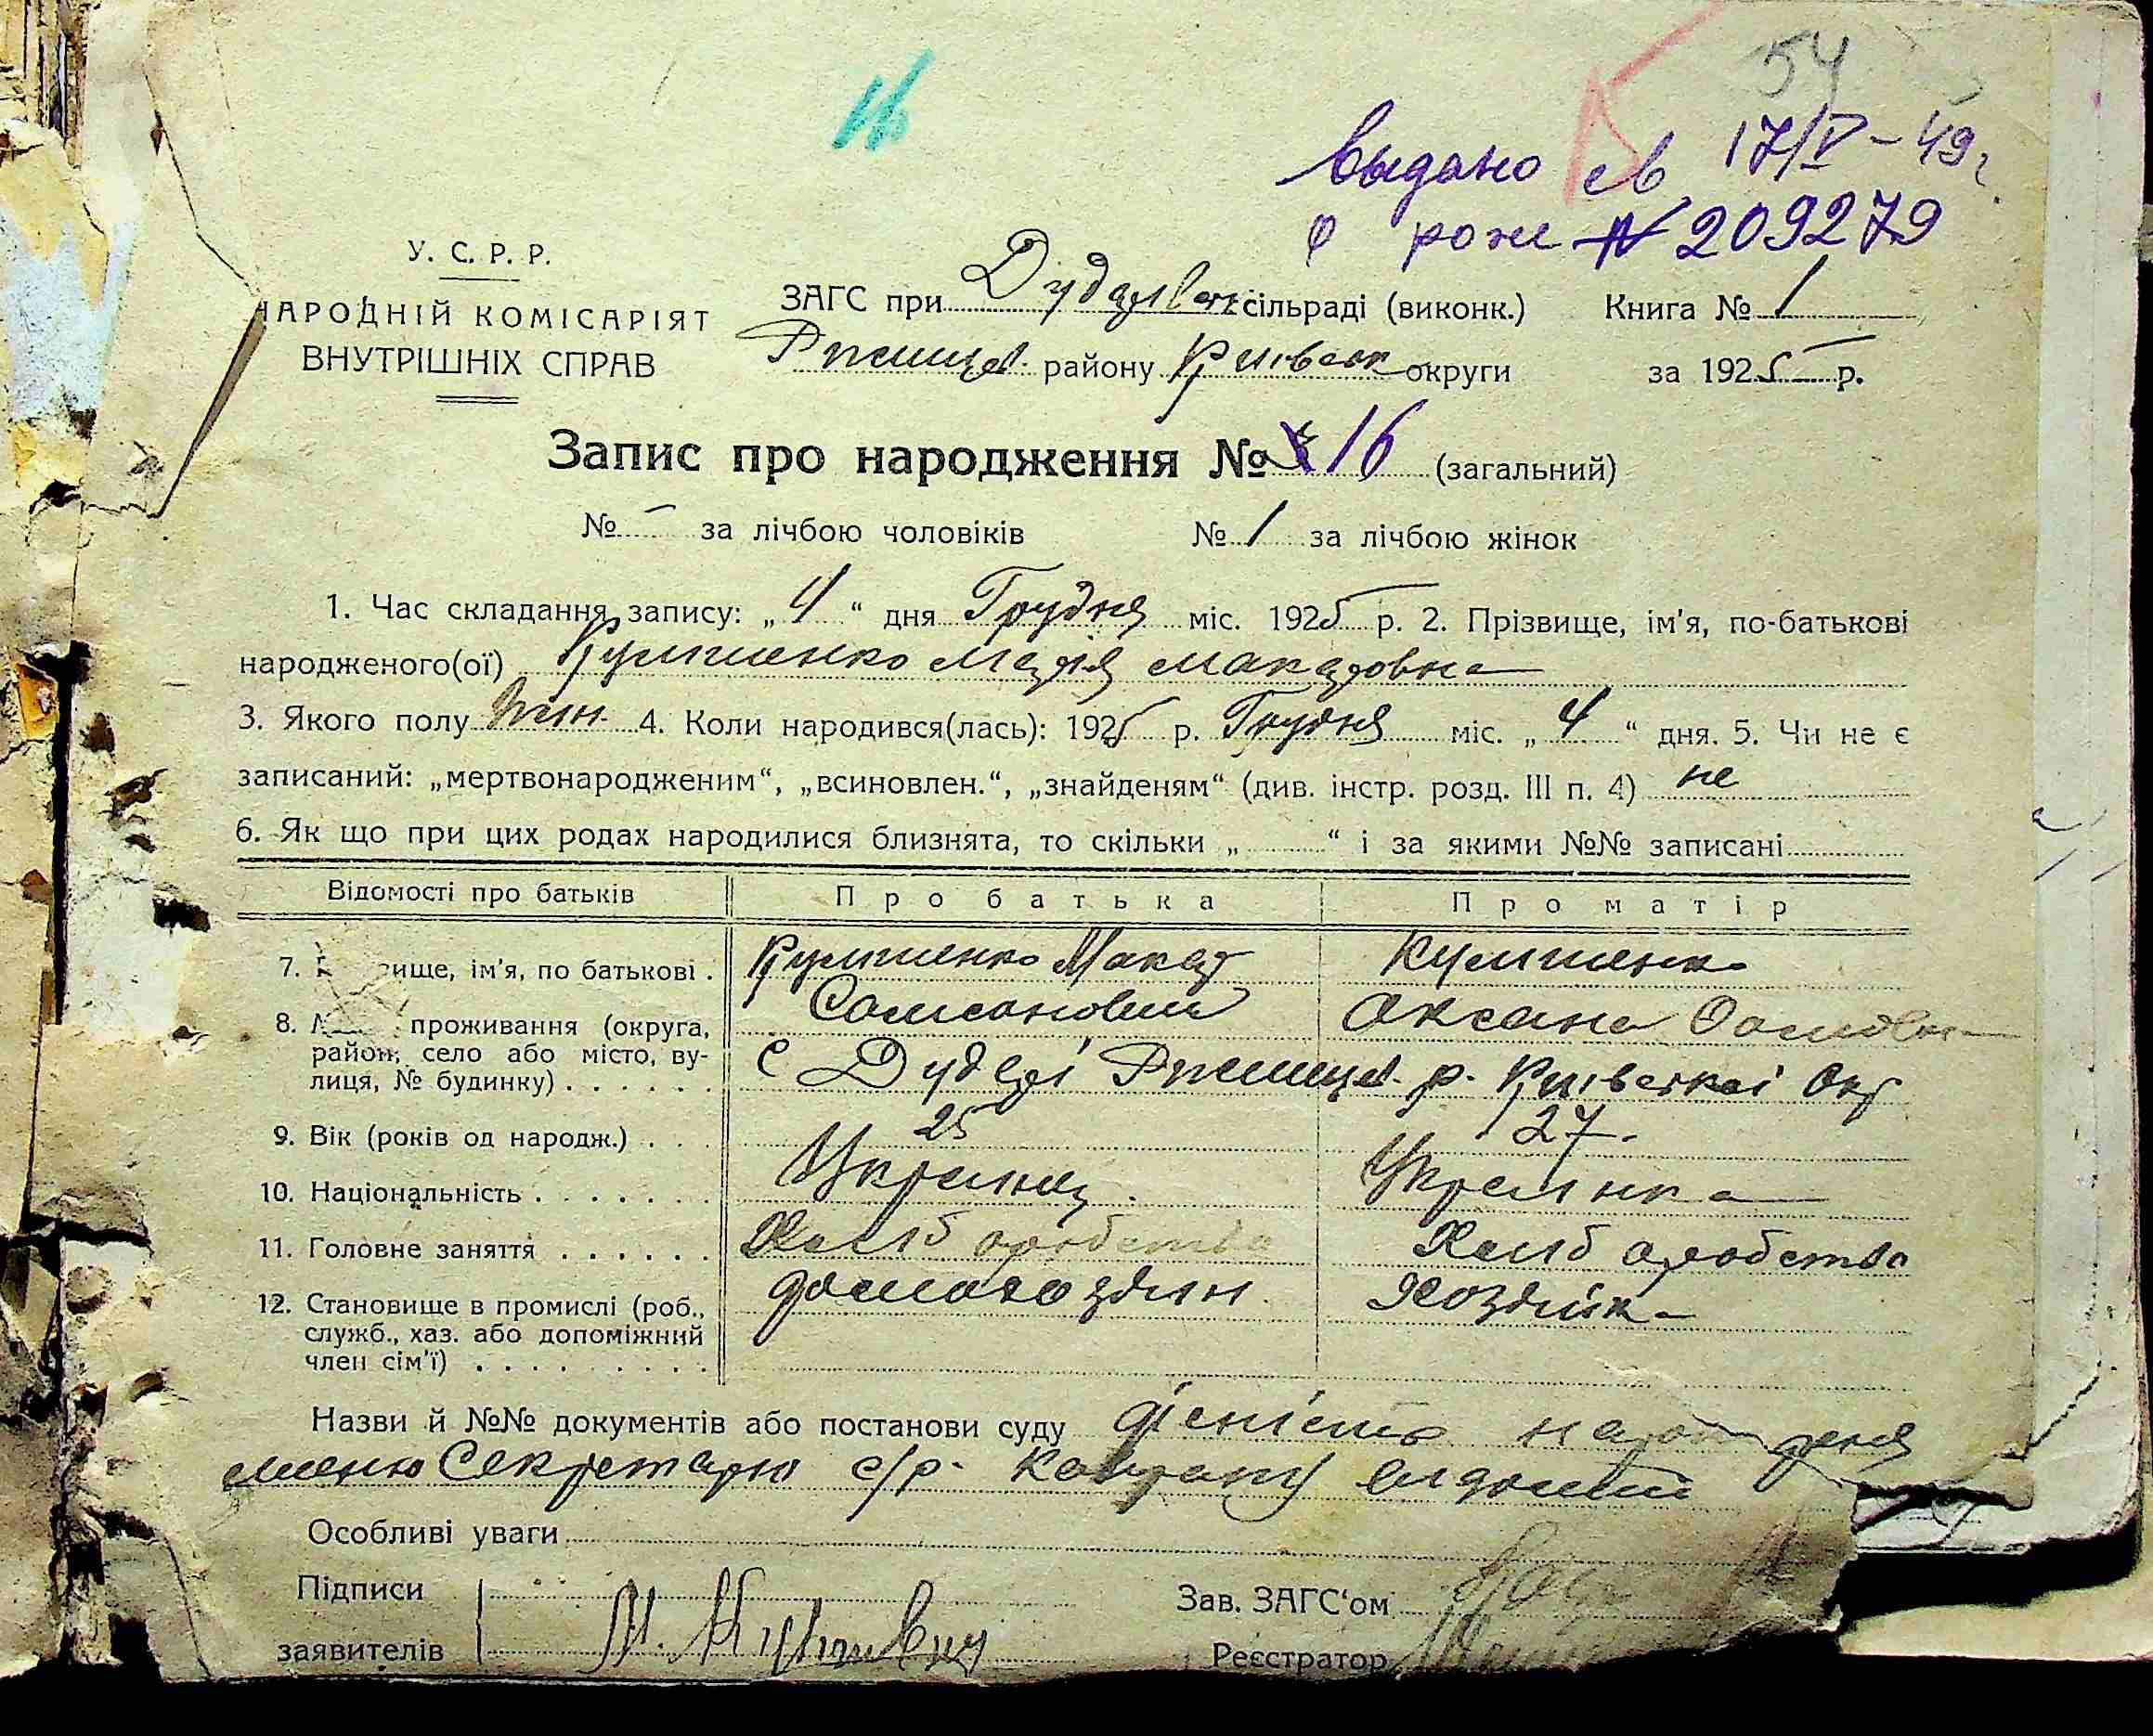 54
16
выдано св 17/V-49г
о рож N 209279
У. С. Р. Р.
НАРОДНІЙ КОМІСАРІЯТ
ВНУТРІШНІХ СПРАВ
ЗАГС при сільраді (виконк.) Книга № 1
Ржищев. району Київськ округи за 1925 р.
Запис про народження № 16 (загальний)
№ – за лічбою чоловіків № 1 за лічбою жінок
1. Час складання запису: „ 4 “ дня Грудня міс. 1925 р. 2. Прізвище, ім'я, по-батькові
народженого(ої) Марія Макаровна
3. Якого полу жін. 4. Коли народився(лась): 1925 р. Грудня міс. „ 4 “ дня. 5. Чи не є
записаний: „мертвонародженим“, „всиновлен.“, „знайденям“ (див. інстр. розд. III п. 4) не
6. Як що при цих родах народилися близнята, то скільки „ “ і за якими №№ записані
Відомості про батьків Про батька Про матір
7. ище, ім'я, по батькові . Макар
Оксана
8. проживання (округа,
район, село або місто, ву-
лиця, № будинку) . . . . . .
с Дударі Ржищев. р. Київської Окр
9. Вік (років од народж.) . . . 25 27.
10. Національність . . . . . . . Українец. Українка
11. Головне заняття . . . . . . Хліборобство Хліборобство
12. Становище в промислі (роб.,
служб., хаз. або допоміжний
член сім'ї) . . . . . . . . .
домохозяін Хозяйка
Назви й №№ документів або постанови суду дієність народженя
мено Секретарю с/р.
Особливі уваги
Підписи
заявителів
Зав. ЗАГС'ом
Реєстратор